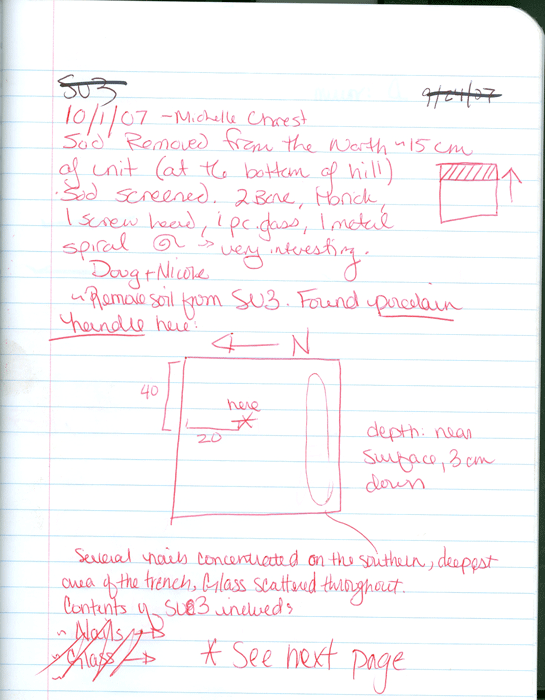 SU3
9/24/07
10/1/07 - Michelle Charest
Sod Removed from the North ~15 cm
of unit (at the bottom of hill)
Sod screened. 2 Bone, 1 brick,
1 screw head, 1 pc. glass, 1 metal
spiral → very interesting.
Doug + Nicole
~ Remove soil from SU3. Found porcelain
handle here:
← N
40
here
20
depth: near
surface, 3 cm
down
Several nails concentrated on the southern, deepest
area of the trench, Glass scattered throughout.
Contents of SU3 include:
~ Nails →
~ Glass →
* See next page